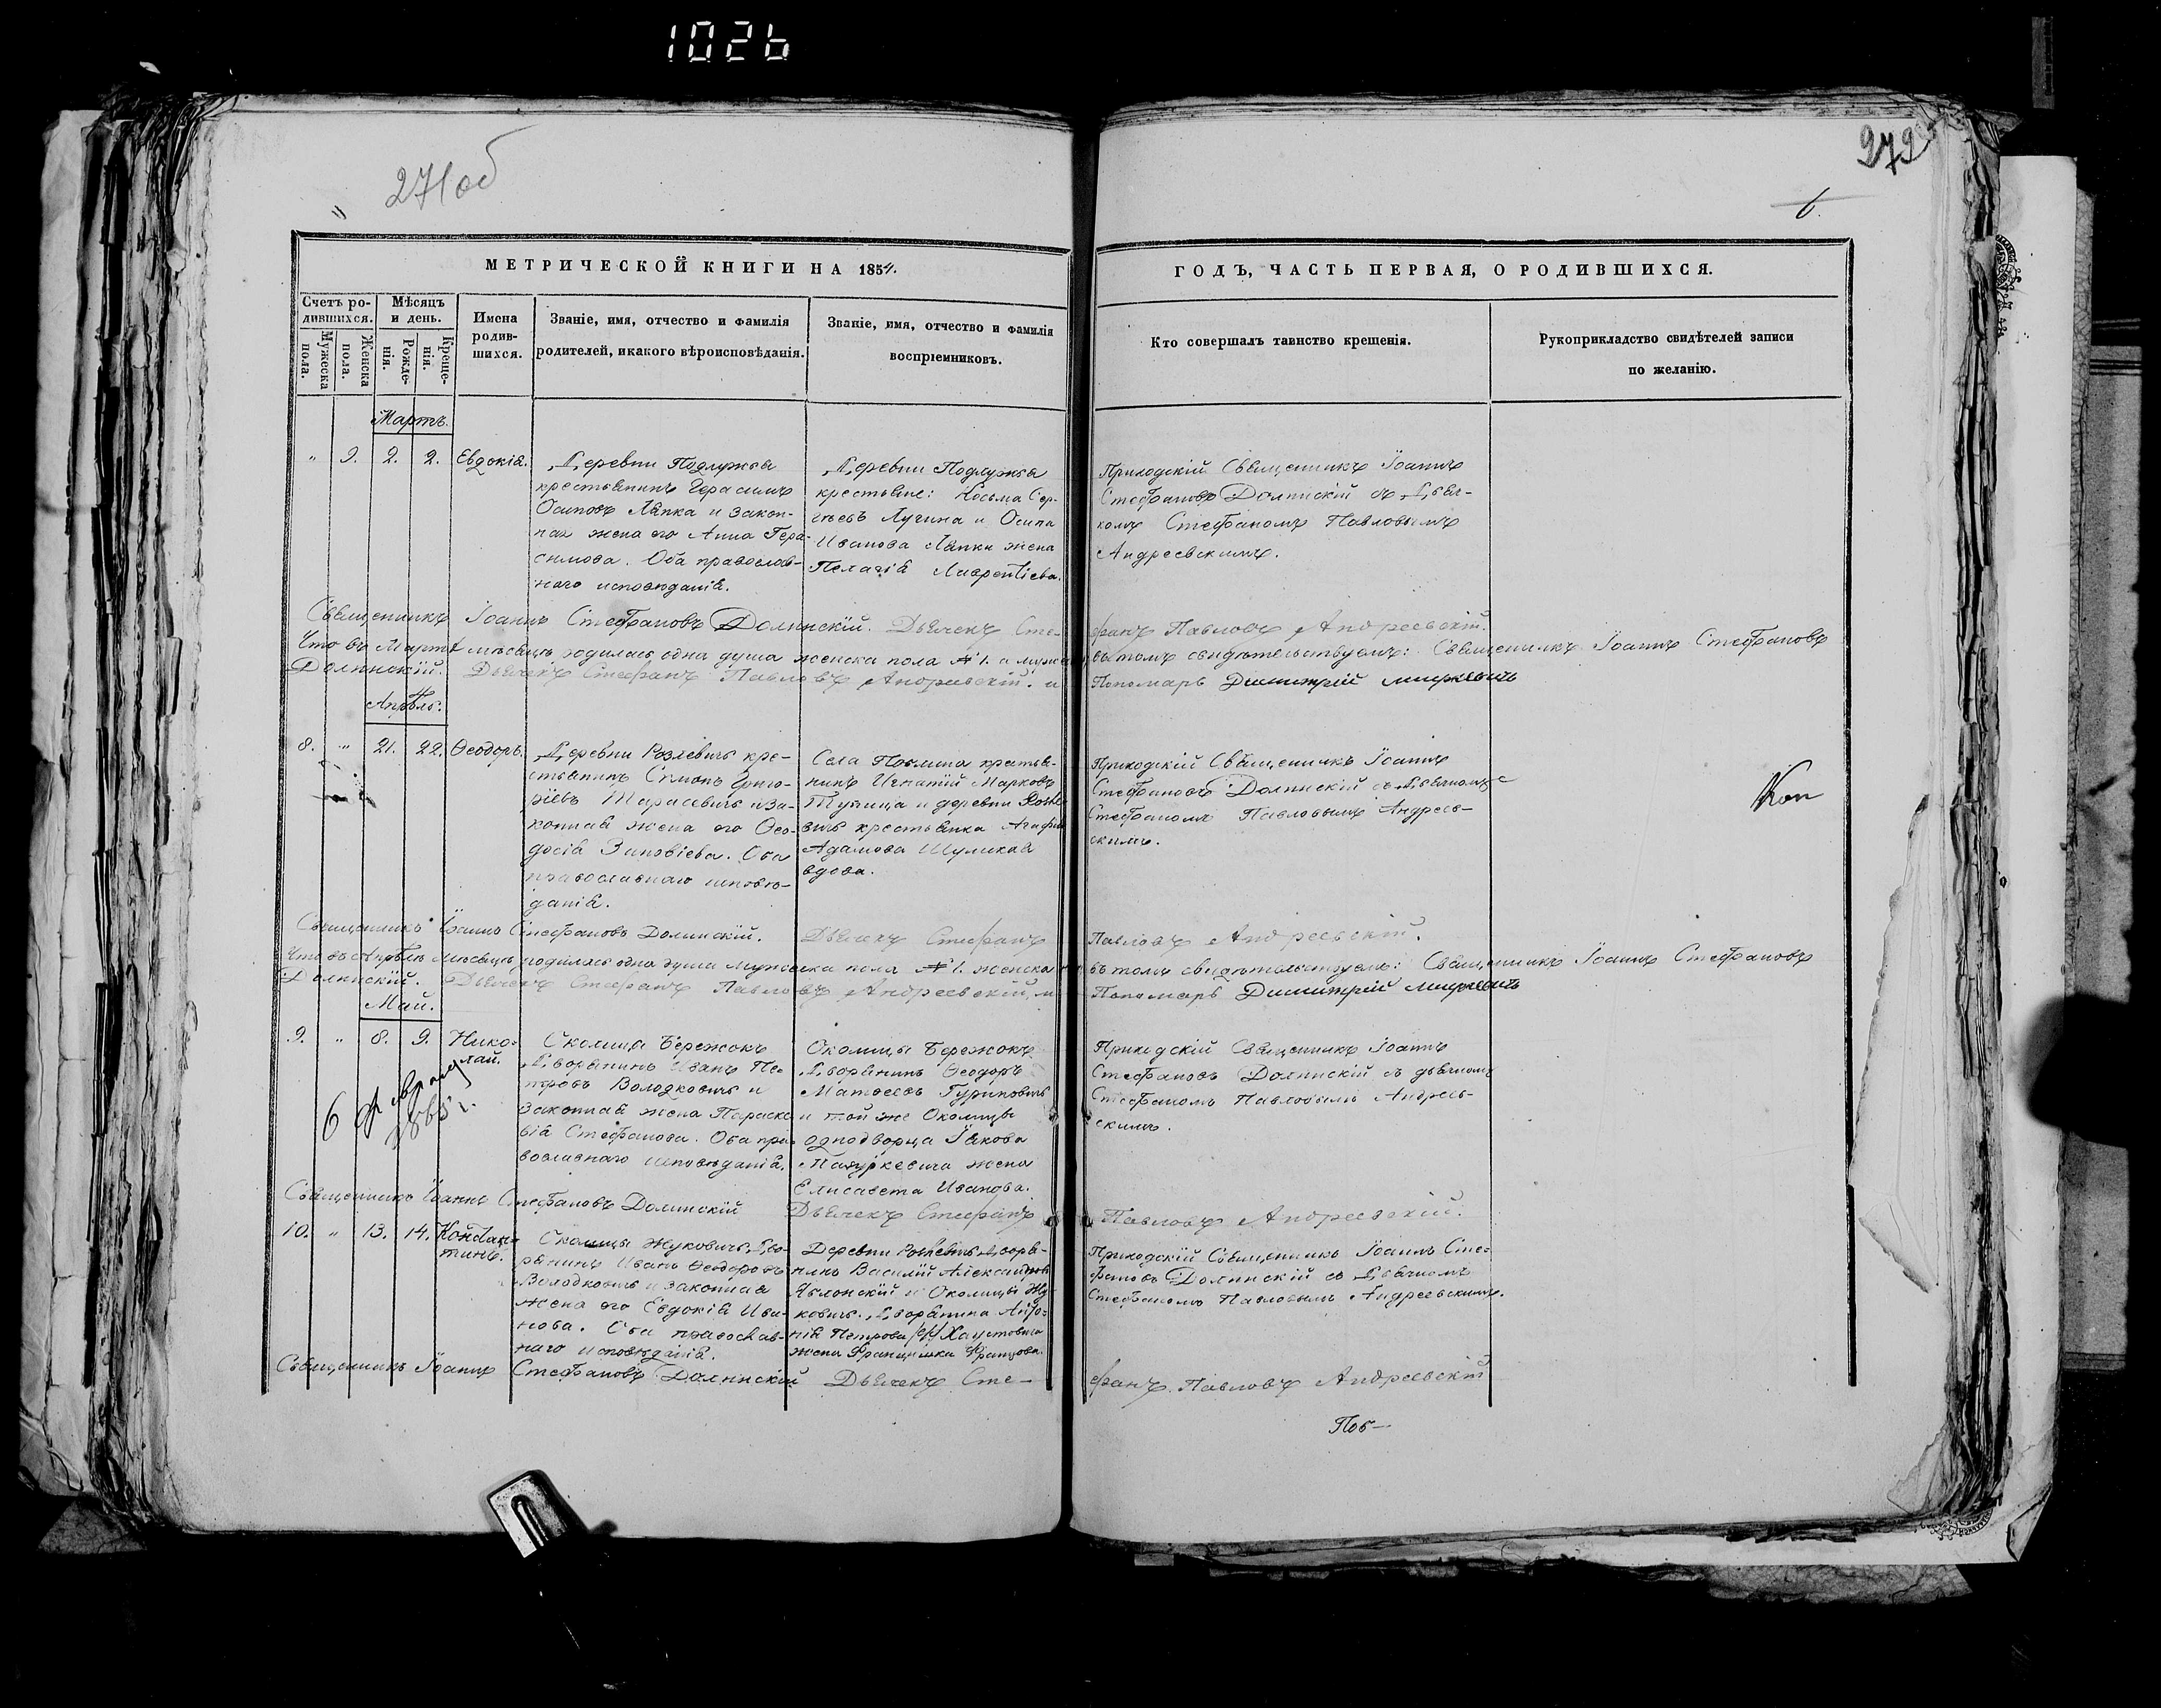 1026
271об
272
6
МЕТРИЧЕСКОЙ КНИГИ НА 1854.
ГОДЪ, ЧАСТЬ ПЕРВАЯ, О РОДИВШИХСЯ.
Счетъ ро-
дившихся.
Мужеска
пола.
Женска
пола.
Мѣсяцъ
и день.
Рожде-
нія.
Креще-
нія.
Имена
родив-
шихся.
Званіе, имя, отчество и фамилія
родителей, и какого вѣроисповѣданія.
Званіе, имя, отчество и фамилія
воспріемниковъ.
Кто совершалъ таинство крещенія.
Рукоприкладство свидѣтелей записи
по желанію.
Мартъ.
" 9. 2. 2. Евдокія.
Деревни Подлужья
крестьянинъ Герасимъ
Осиповъ Лапка и закон-
ная жена его Анна Гера-
симова. Оба православ-
наго исповѣданія.
Деревни Подлужья
крестьяне: Косьма Сер-
гѣевъ Лучина и Осипа
Иванова Лапки жена
Пелагія Лаврентіева.
Приходскій Священникъ Іоаннъ
Стефановъ Долинскій съ Дьяч-
комъ Стефаномъ Павловымъ
Андреевскимъ.
Священникъ Іоаннъ Стефановъ Долинскій. Дьячекъ Сте-
фанъ Павловъ Андреевскій.
Что въ Мартѣ мѣсяцѣ родилась одна душа женска пола № 1. а
въ томъ свидѣтельствуемъ: Священникъ Іоаннъ Стефановъ
Долинскій. Дьячекъ Стефанъ Павловъ Андреевскій. и
Пономарь Димитрій
Апрѣль.
8. " 21. 22. Ѳеодоръ.
Деревни Розлевичъ кре-
стьянинъ Симонъ Григо-
рьевъ Тарасевичъ и за-
конная жена его Ѳео-
досія Зиновіева. Оба
православнаго исповѣ-
данія.
Села крестья-
нинъ Игнатій Марковъ
Тупица и деревни Розле-
вичъ крестьянка Агафія
Адамова Шулика
вдова.
Приходскій Священникъ Іоаннъ
Стефановъ Долинскій съ Дьячкомъ
Стефаномъ Павловымъ Андреев-
скимъ.
Коп
Священникъ Іоаннъ Стефановъ Долинскій. Дьячекъ Стефанъ
Павловъ Андреевскій.
Что въ Апрѣлѣ мѣсяцѣ родилась одна душа мужеска пола № 1. женска
въ томъ свидѣтельствуемъ: Священникъ Іоаннъ Стефановъ
Долинскій. Дьячекъ Стефанъ Павловъ Андреевскій, и
Пономарь Димитрій
Май.
9. " 8. 9. Нико-
лай.
6
1865 г.
Околицы Бережокъ
Дворянинъ Иванъ Пе-
тровъ Володковичъ и
законная жена Параске-
вія Стефанова. Оба пра-
вославнаго исповѣданія.
Околицы Бережокъ
Дворянинъ Ѳеодоръ
Матвеевъ Гуриновичъ
и той же Околицы
однодворца Іакова
Мазуркевича жена
Елисавета Иванова.
Приходскій Священникъ Іоаннъ
Стефановъ Долинскій съ дьячкомъ
Стефаномъ Павловымъ Андреев-
скимъ.
Священникъ Іоаннъ Стефановъ Долинскій Дьячекъ Стефанъ
Павловъ Андреевскій.
10. " 13. 14. Констан-
тинъ.
Околицы Жуковичъ Дво-
рянинъ Иванъ Ѳеодоровъ
Володковичъ и законная
жена его Евдокія Ива-
нова. Оба православ-
наго исповѣданія.
Деревни Розлевичъ дворя-
нинъ Василій Александровъ
Яблонскій и Околицы Жу-
ковичъ, Дворянина Анто-
нія Петрова Хаустовича
жена Францишка Францова.
Приходскій Священникъ Іоаннъ Сте-
фановъ Долинскій съ Дьячкомъ
Стефаномъ Павловымъ Андреевскимъ.
Священникъ Іоаннъ Стефановъ Долинскій Дьячекъ Сте-
фанъ Павловъ Андреевскій
Поб-